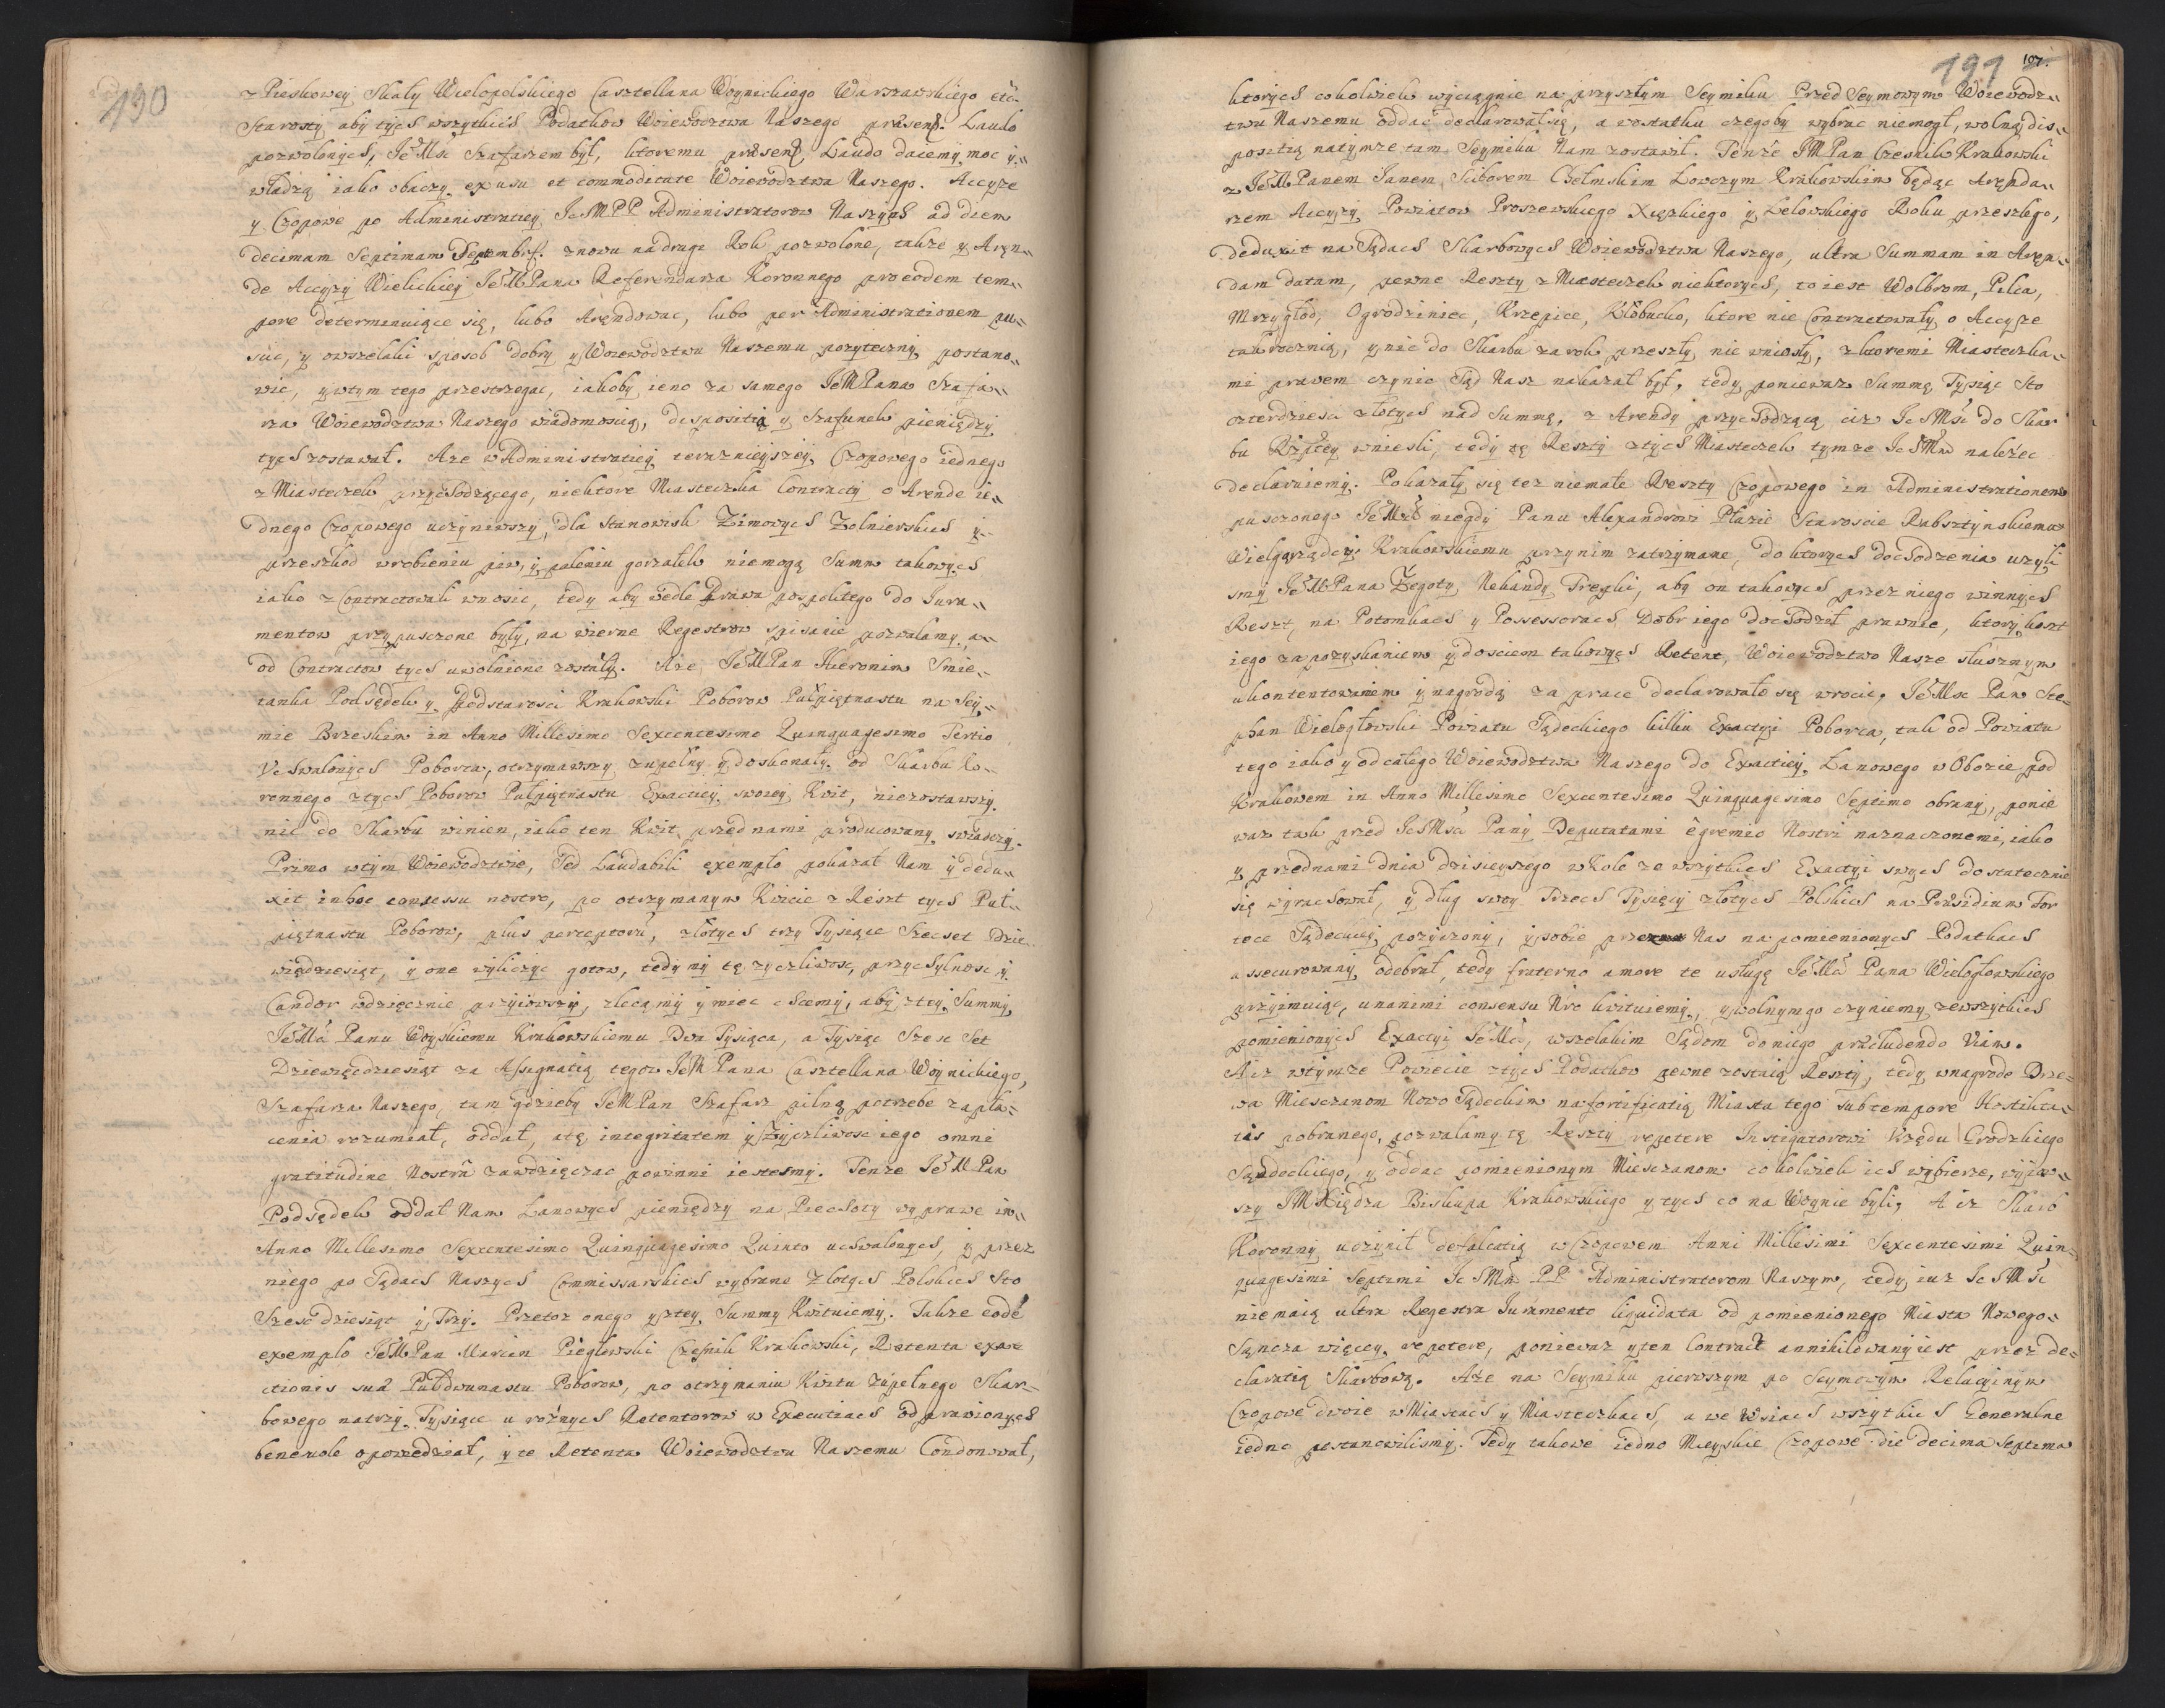 190
z Pieskowey Skały Wielopolskiego Casztellana Woynickiego Warszawskiego etc
Starosty aby tych wszytkich Podatkow Woiewodztwa Naszego præsenti Laudo
pozwolonych, JeMść Szafarzem był, ktoremu præsenti Laudo daiemy moc y
władzą iako obaczy ex usu et commoditate Woiewodztwa Naszego. Accyze
y Czopowe po Administratiey IchMPP Administratorow Naszych ad diem
decimam Septimam Septembris. znowu na drugi Rok pozwolone, takze y Aręn-
de Accyzy Wielickiey JeMPana Referendarza Koronnego pro eodem tem-
pore determinuiące się, lubo Arędowac, lubo per Administrationem pu-
scic, y owszelaki sposob dobry y Woiewodztwu Naszemu pozyteczny postano-
wic, y wtym tego przestrzegac, iakoby ieno za samego JeMPana Szafa-
rza Woiewodztwa Naszego wiadomoscią, despositią y Szafunek pieniędzy
tych zostawał. Aze w Administratiey teraznieyszey Czopowego iednego
z Miasteczek przychodzącego, niektore Miasteczka Contracty o Arende ie-
dnego Czopowego uczyniwszy, dla stanowisk Zimowych Zolnierskich y
przeszkod wrobieniu piw, y paleniu gorzałek niemogą Summ takowych
iako z Contractowali wnosic, tedy aby wedle Prawa pospolitego do Iura-
mentow przypusczone były, na wierne Regestrow spisanie pozwalamy, a-
od Contractow tych uwolnione zostały. Aze JeMPan Hieronim Smie-
tanka Podsędek y Podstarosci Krakowski Poborow Pułpiętnastu na Sey-
mie Brzeskim in Anno Millesimo Sexcentesimo Quinquagesimo Tertio
Vchwalonych Poborca, otrzymawszy zupełny y doskonały od Skarbu Ko-
ronnego z tych Poborow Pułpiętnastu Exactiey swoiey Kwit, niezostawszy
nic do Skarbu winien, iako ten Kwit przed nami producowany swiadczy.
Primo wtym Woiewodztwie, Sed Laudabili exemplo pokazał Nam y dedu-
xit in hoc consessu nostro, po otrzymanym Kwicie z Reszt tych Puł-
piętnastu Poborow, plus perceptorũ, złotych trzy Tysiące Szescset Dzie
więdziesiąt, y one wyliczyc gotow, tedy my tę zyczliwosc, przychylnosc y
Candor wdzięcznie przyiowszy, zlecamy y miec chcemy, aby z tey Summy
JeMści Panu Woyskiemu Krakowskiemu Dwa Tysiąca, a Tysiąc Szesc Set
Dziewięcdziesiąt za Assignatią tegoz JeMPana Casztellana Woynickiego,
Szafarza Naszego, tam gdzieby JeMPan Szafarz pilną potrzebe zapła-
cenia rozumiał, oddał, a tę integritatem y zyczliwosc iego omni
gratitudine Nostrâ zawdzięczac powinni iestesmy. Tenze JeMPan
Podsędek oddał Nam Łanowych pieniędzy na Piechoty wyprawe in-
Anno Millesimo Sexcentesimo Quinquagesimo Quinto uchwalonych, y przez
niego po Sądach Naszych Commissarskich wybrane Złotych Polskich Sto
Szescdziesiąt y Trzy. Przetoz onego y z tey Summy Kwituiemy. Takze eodẽ
exemplo JeMPan Marcin Pieglowski Czesnik Krakowski, Retenta exa-
ctionis suæ Pułdwunastu Poborow, po otrzymaniu Kwitu zupełnego Skar-
bowego natrzy Tysiące u roznych Retentorow w Executiach odprawionych
benevole opowiedział, y te Retenta Woiewodztwu Naszemu Condonował,
191 107.
ktorych cokolwiek wyciągnie na przyszłym Seymiku Przed Seymowym Woiewodz-
twu Naszemu oddać declarował się, a wostatku czegoby wybrac niemogł, wolną dis-
positią natymze tam Seymiku Nam zostawił. Tenze JMPan Czesnik Krakowski
z JeMPanem Janem Sciborem Chełmskim Łowczym Krakowskim będąc Arenda-
rzem Accyzy Powiatow Proszewskiego Xięzkiego y Lelowskiego Roku przeszłego,
deduxit na Sądach Skarbowych Woiewodztwa Naszego, ultra Summam in Aręn-
dam datam, pewne Reszty z Miasteczek niektorych, to iest Wolbrom, Pilca,
Mrzygłod, Ogrodziniec, Krzepice, Kłobucko, ktore nie Contractowały o Accyze
takrocznią, y nic do Skarbu za rok przeszły nic wniosły, z ktoremi Miasteczka-
mi prawem czynic Sąd Nasz nakazał był, tedy poniewaz Summę Tysiąc Sto
czterdziesci złotych nad Summę, z Arendy przychodzącą ciz IchMśc do Skar
bu Rzptey wniesli, tedy tę Reszty z tych Miasteczek tymze IchMm nalezec
declaruiemy. Pokazały się tez niemałe Reszty Czopowego in Administrationem
pusczonego JeMści niegdy Panu Alexandrowi Płazie Staroscie Rabsztynskiemu
Wielgorządcy Krakowskiemu przynim zatrzymane, do ktorych dochodzenia uzyli
smy JeMPana Żegoty Nekandy Trepki, aby on takowych przez niego winnych
Reszt, na Potomkach y Possessorach Dobr iego dochodzeł prawnie, ktory koszt
iego za pozyskaniem y dosciem takowych Retent, Woiewodztwo Nasze słusznym
ukontentowaniem y nagrodą za prace declarowało się wrocic, JeMsc Pan Ste-
phan Wielogłowski Powiatu Sądeckiego kilku Exactyi Poborca, tak od Powiatu
tego iako y odcałego Woiewodztwa Naszego do Exactiey Łanowego w Obozie pod
Krakowem in Anno Millesimo Sexcentesimo Quinquagesimo Septimo obrany, ponie
waz tak przed IchMścią Pany Deputatami è gremio Nostri naznaczonemi, iako
y przednami dnia dzisieyszego w Kole ze wszytkich Exactyi swych dostatecznie
się wyrachował, y dług swoy Trzech Tysięcy złotych Polskich na Præsidium For
tece Sądeckiey pozyczony, y sobie przez Nas na pomienionych Podatkach
assecurowany odebrał, tedy fraterno amore te usługę JeMści Pana Wielogłowskiego
przyimuiąc, unanimi consensu Nro kwituiemy, y wolnym go czyniemy zewszytkich
pomienionych Exactyi JeMści, wszelakim Sądom do niego præcludendo Viam.
A iz wtymze Powiecie z tych Podatkow pewne zostaią Reszty, tedy wnagrode Drze-
wa Miesczanom Nowo Sądeckim nafortificatią Miasta tego sub tempore Hostilita-
tis pobranego, pozwalamy tę Reszty repetere Instigatorowi Vrzędu Grodzkiego
Sądeckiego, y oddac pomienionym Miesczanom cokolwiek ich wybierze, wyiow-
szy JMXiędza Biskupa Krakowskiego y tych co na Woynie byli, A iz Skarb
Koronny uczynił defalcatią w Czopowem Anni Millesimi Sexcentesimi Quin-
quagesimi Septimi IchMm PP Administratorom Naszym, tedy iuz IchMśc
niemaią ultra Regestra Iuramento liquidata od pomienionego Miasta Nowego-
Sącza więcey repetere, poniewaz y ten Contract annihilowany iest przez de-
claratią Skarbową. Aze na Seymiku pierwszym po Seymowym Relacyinym
Czopowe dwoie w Miastach y Miasteczkach, a we Wsiach wszytkich Generalne
iedno postanowilismy. Tedy takowe iedno Mieyskie Czopowe die decima Septima